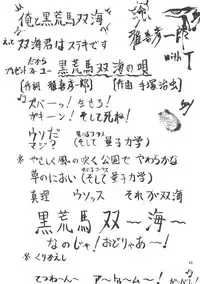 "俺と黒荒馬双海"
雅春彦一郎
with T
えって 双海君はステキです
だから
プレゼント フォー ユー 黒荒馬双海の唄
[作詞 雅春彦一郎] [作曲 手塚治虫]
ズバーッ！生きろ！
ガキーン！そして死ね！
ウソだ
マジ？ (そして量子力学)
※ やさしく風の吹く公園で やわらかな
草のにおい (そして量子力学)
真理 ウソッス それが双海
黒荒馬双〜海〜
なのじゃ！おどりゃあ〜！
※ くりかえし
てつわ〜ん アートルーム〜！